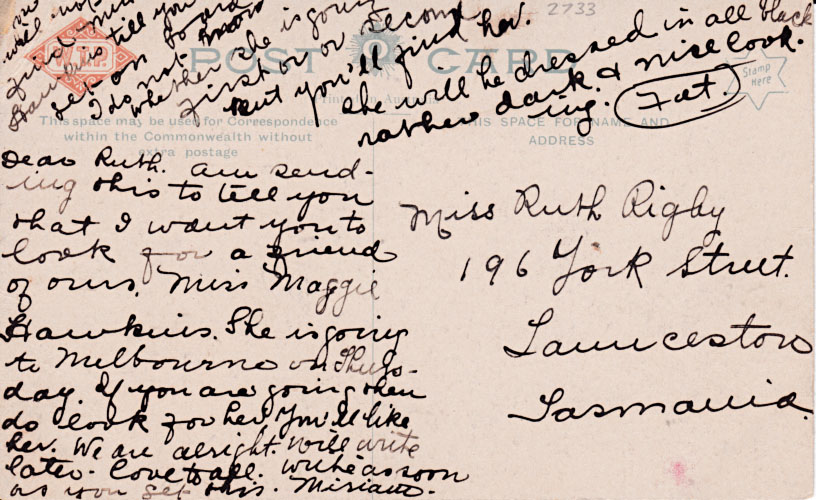 Dear Ruth. am send-
ing this to tell you
that I want you to
look for a friend
of ours. Miss Maggie
Hawkins. She is going
to Melbourne on Thurs-
day. If you are going then
do look for her. You'll like
her. We are alright. Will write
later. Love to all. Write as soon
as you get this. Miriam.
will not
find Miss
Hawkins till you
get on board
I do not know
whether she is going
first or or second
But you'll find her.
she will be dressed in all black
rather dark. & nice look-
ing. Fat.
Miss Ruth Rigby
196 York Street.
Launceston
Tasmania.
2733
POST CARD
This space may be used for Correspondence
within the Commonwealth without
extra postage
THIS SPACE FOR NAME AND
ADDRESS
Stamp
Here